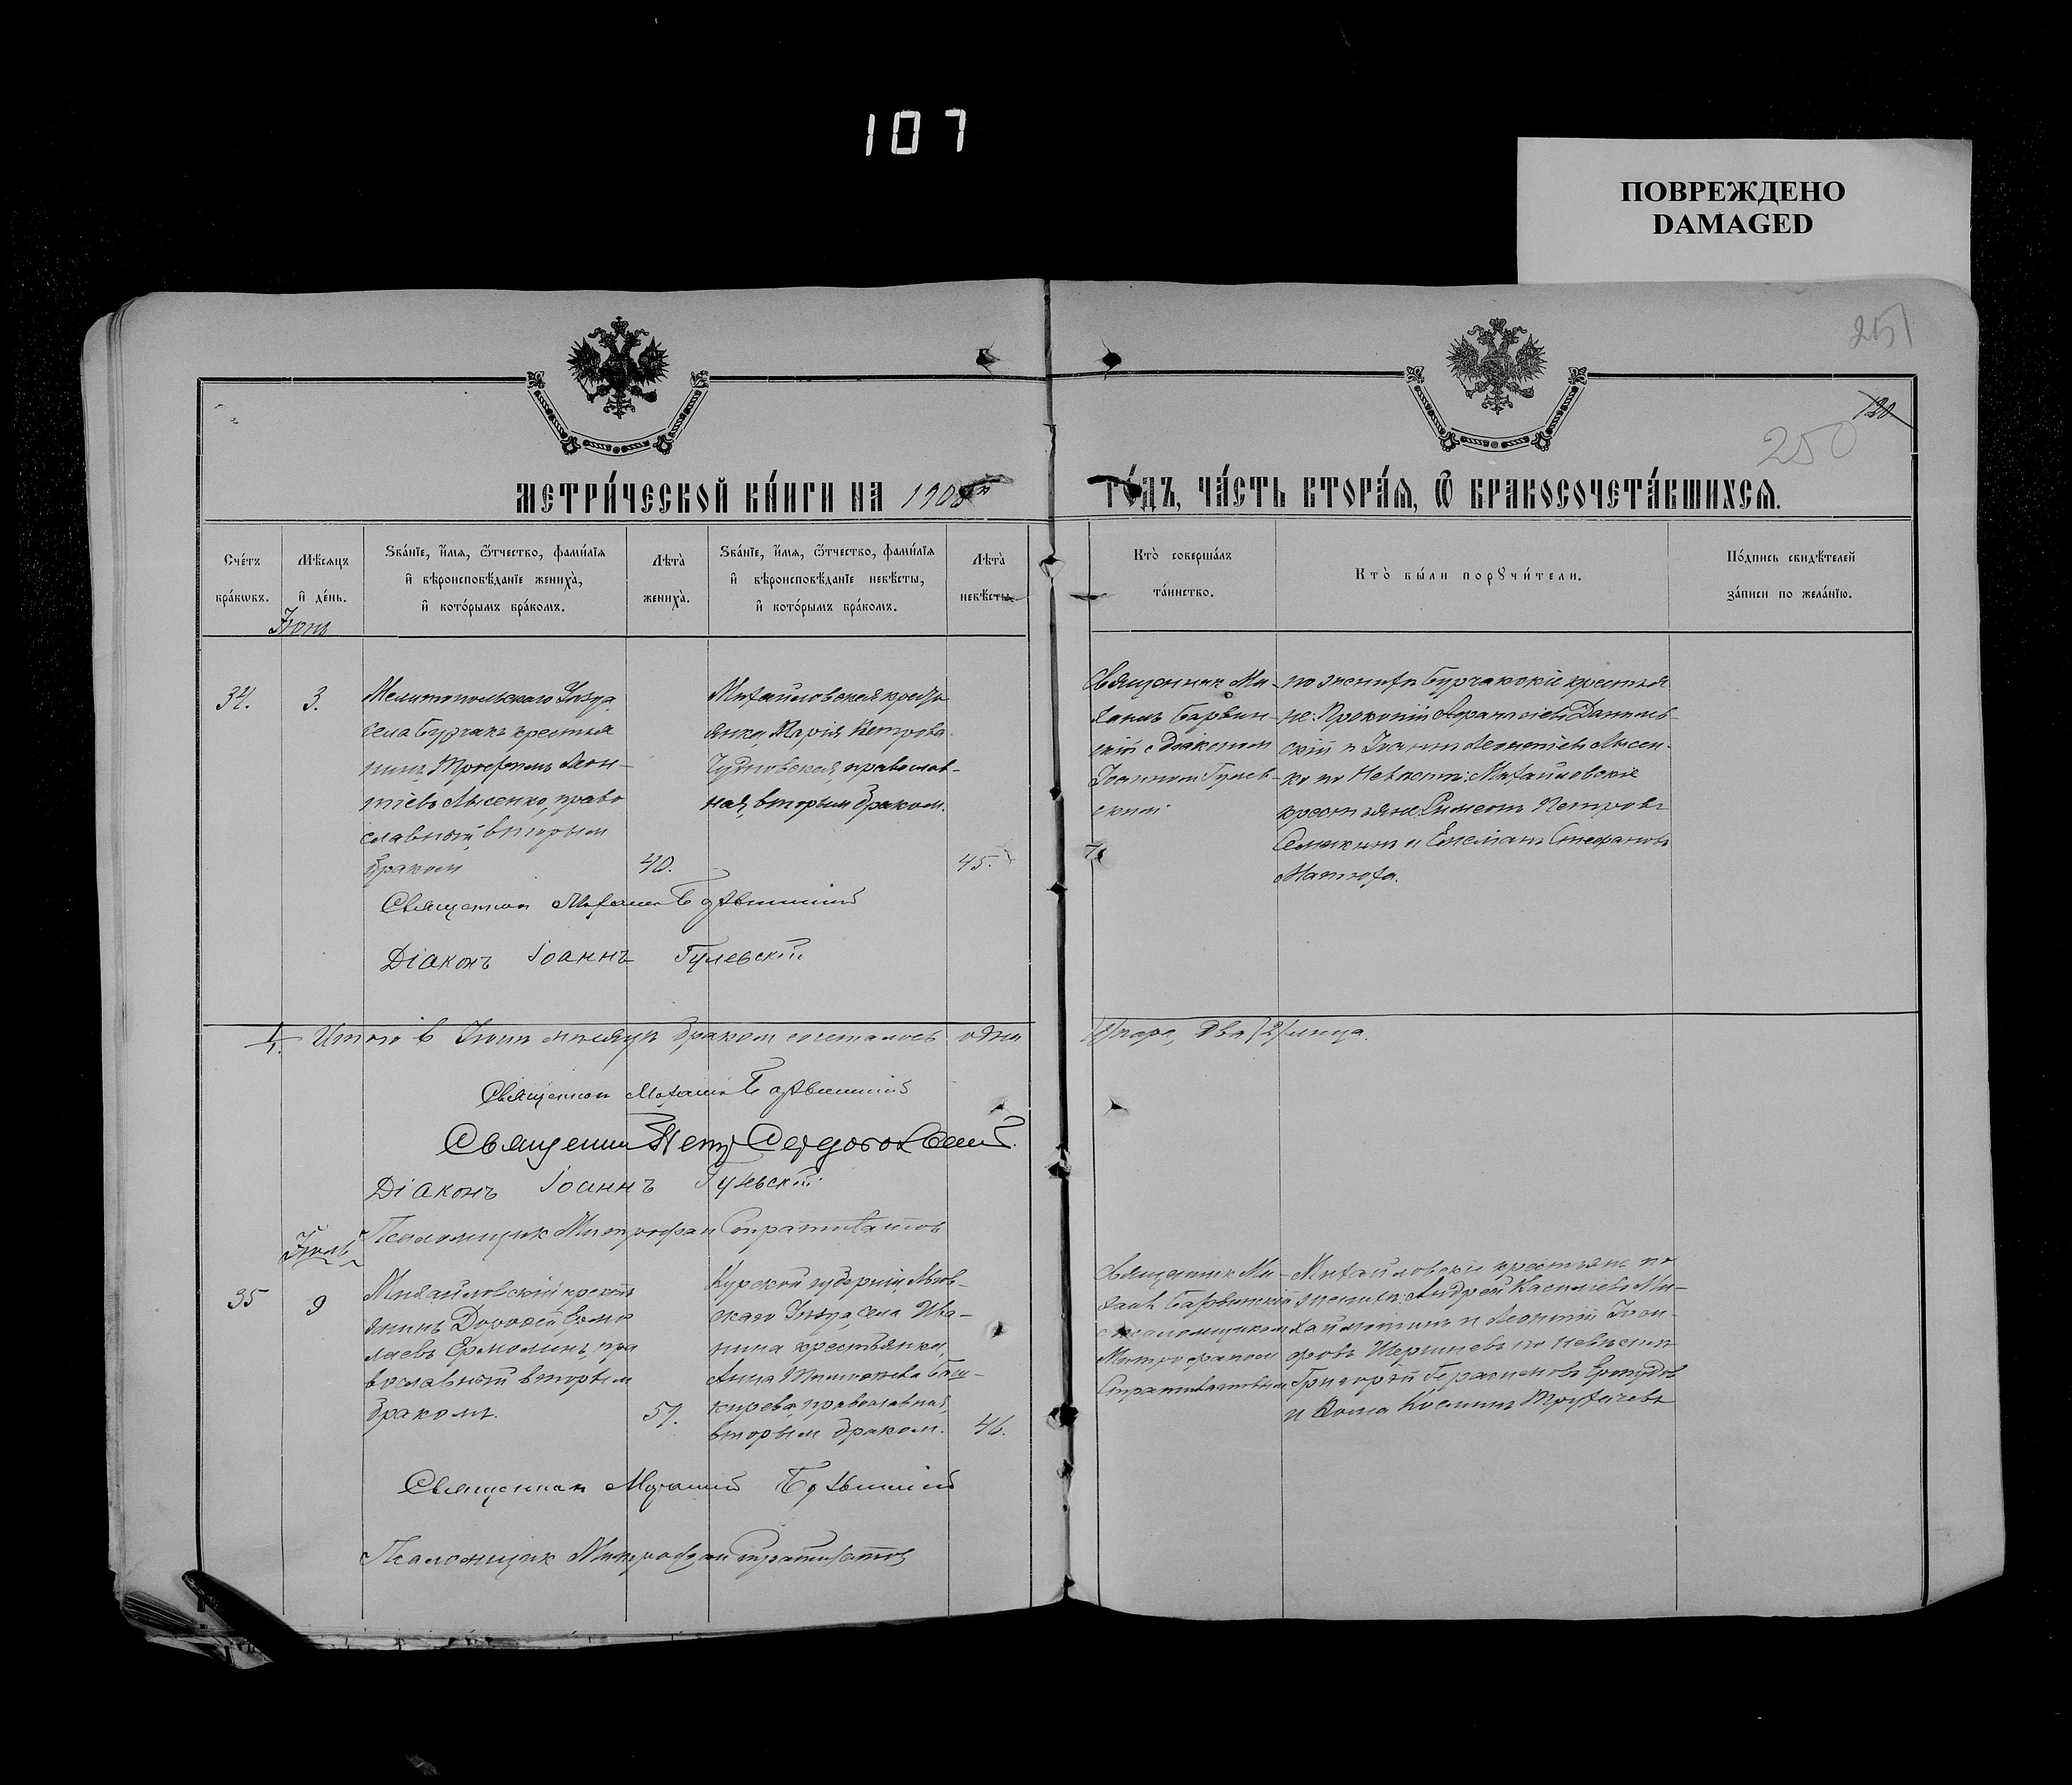 107
ПОВРЕЖДЕНО
DAMAGED
251
130
250
МЕТРИ́ЧЕСКОЙ КНИ́ГИ НА 1908
ГО́ДЪ, ЧА́СТЬ ВТОРА́Я, Ѿ БРАКОСОЧЕТА́ВШИХСЯ.
Сче́тъ
бра́кѡвъ.
Мѣ́сяцъ
и҆ де́нь.
Ѕва́нїе, и҆́мя, ѻ҆́тчество, фами́лїя
и҆ вѣроисповѣ́данїе жениха̀,
и҆ кото́рымъ бра́комъ.
Лѣта̀
жениха̀.
Ѕва́нїе, и҆́мя, ѻ҆́тчество, фами́лїя
и҆ вѣроисповѣ́данїе невѣ́сты,
и҆ кото́рымъ бра́комъ.
Лѣта̀
невѣ́сты.
Кто̀ соверша́лъ
та́инство.
Кто̀ бы́ли порꙋчи́тели.
По́дпись свидѣ́телей
за́писи по жела́нїю.
Іюнь
34.
3.
Мелитопольскаго Уѣзда
села Бурчакъ крестья
нинъ Трофимъ Леон-
тіевъ Лысенко, право
славный, вторым
браком
40.
Михайловская крестъ
янка, Марія Петрова
Чудновская, православ-
ная, вторым браком.
45.
Священник Ми-
хаилъ Барвин-
скій с діаконом
Іоанном Гулев-
ским
по женихѣ Бурчакскіе крестья
не: Прокопій Данилев-
скій и Іванъ Леонтіевъ Лысен-
ко по Невѣстѣ: Михайловскіе
крестьяне Симеонъ Петровъ
Семыкинъ и Емеліанъ Стефановъ
Матюха.
Священник Михаил Барвинский
Діаконъ Іоаннъ Гулевскій
Итого в Іюнѣ мѣсяцѣ браком сочеталось одна
/1/ пара, два /2/ лица.
Священник Михаил Барвинский
Священник Петр
Діаконъ Іоаннъ Гулевскій
Псаломщик Митрофан Стратилатов
Іюль
35
9
Михайловскій крестъ
янинъ Дорофей Ермо
лаевъ Ермолинъ, пра
вославный вторым
браком.
51.
Курской губерніи, Льгов-
скаго Уѣзда, села Ива-
нина крестьянка,
Анна Тимофеева Баш-
кирева, православная,
вторым браком.
46.
Священник Ми-
хаил Барвинскій
с псаломщиком
Митрофаном
Стратилатовым
Михайловскіе крестьяне по
женихѣ: Андрей Василіевъ Ми-
хайлютинъ и Леонтій
по невѣстѣ
Григорій Герасимовъ
и Ѳома Косминъ
Священник Михаил Барвинский
Псаломщик Митрофан Стратилатов